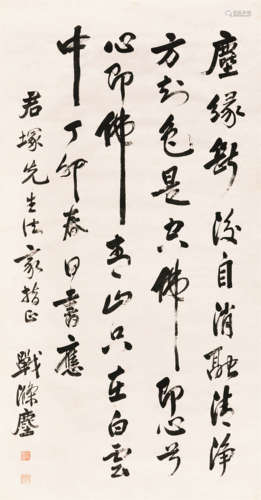 塵緣斷後自消融清淨
方知色是空佛即心兮
心即佛青山只在白雲
中丁卯春日書應
君塚先生法家指正 戰滌塵